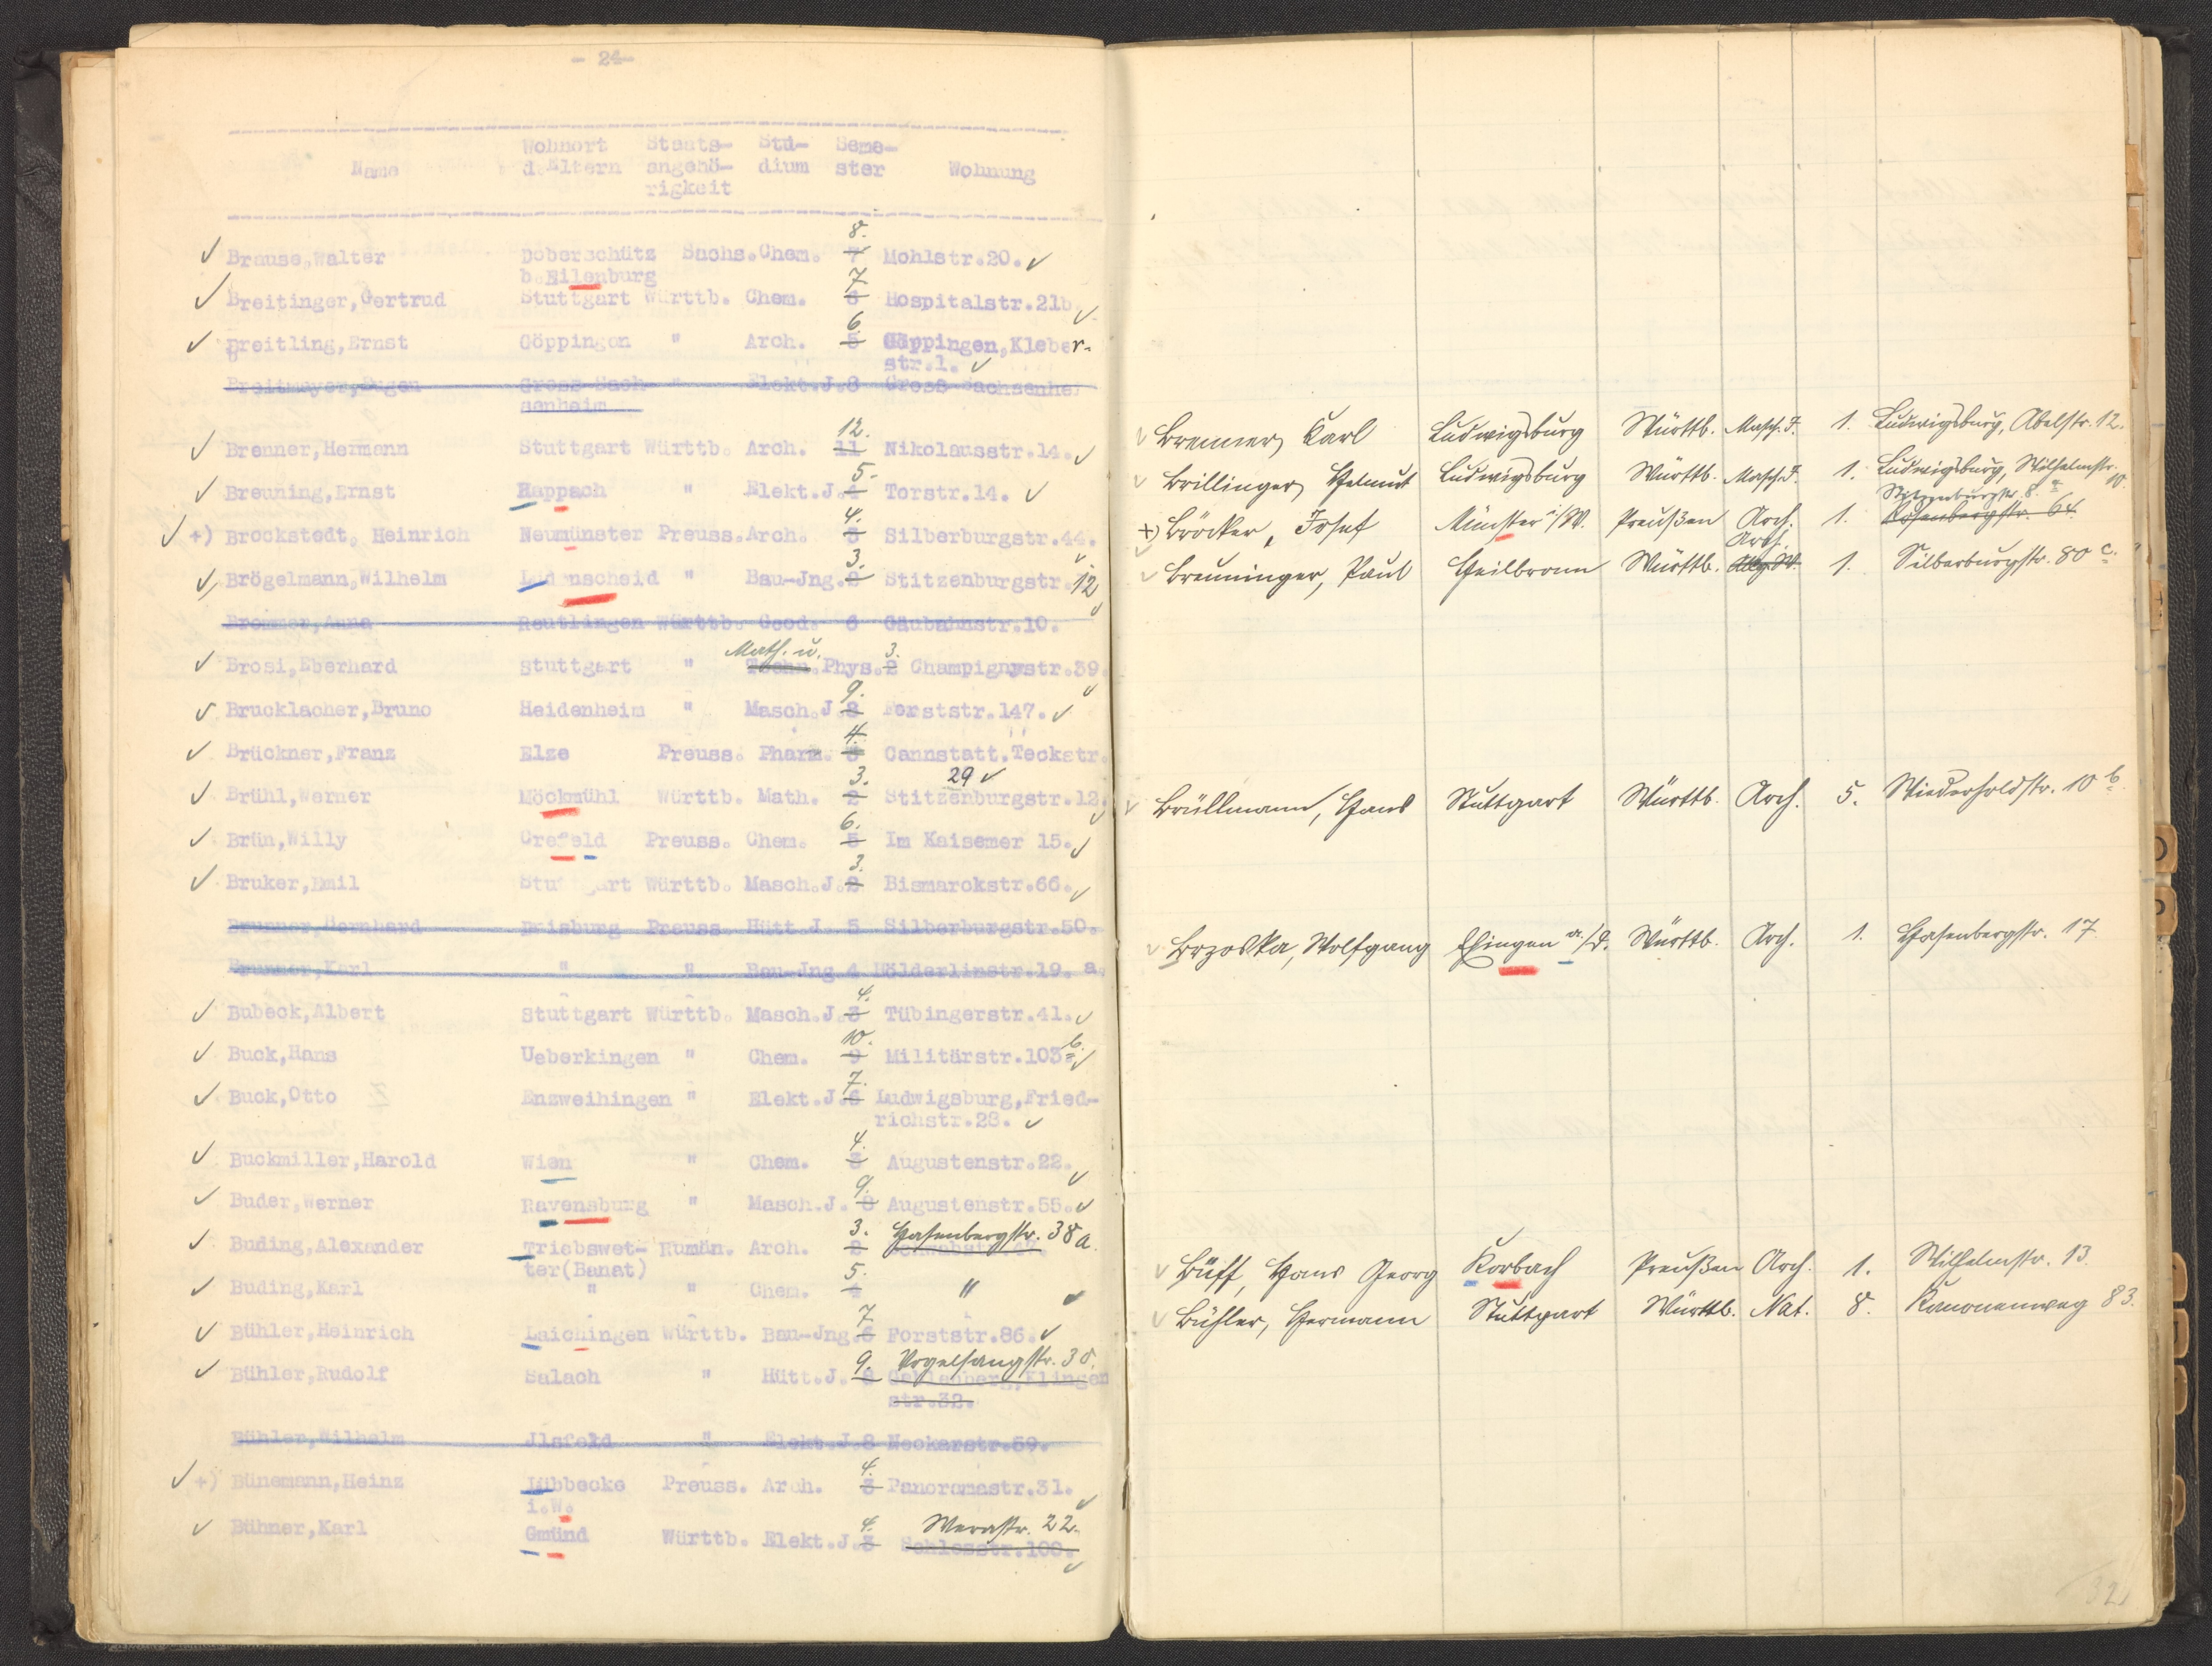 - 24 -
Name Wohnort d.Eltern Staats-angehö-rigkeit Stu-dium Seme-ster Wohnung
8.
✓ Brause,Walter Doberschütz Sachs. Chem. 7 Mohlstr.20. ✓
b.Eilenburg 7
✓ Breitinger,Gertrud Stuttgart Württb. Chem. 6 Hospitalstr.21b ✓
6.
✓ Breitling,Ernst Göppingen " Arch. 5 Göppingen,Kleber-
str.1. ✓
Breitmeyer,Eugen Gross Sach- " Elekt.J.8 Gross Sachsenhe
senheim
12.
✓ Brenner,Hermann Stuttgart Württb. Arch. 11 Nikolausstr.14. ✓
5.
✓ Breuning,Ernst Rappach " Elekt.J.4 Torstr.14. ✓
4.
✓ +) Brockstedt, Heinrich Neumünster Preuss. Arch. 3 Silberburgstr.44. ✓
3.
✓ Brögelmann,Wilhelm Lüdenscheid " Bau-Jng.2 Stitzenburgstr.12 ✓
Brommer,Anna Reutlingen Württb. Geod. 6 Gäubahnstr.10.
Math. u. 3.
✓ Brosi,Eberhard Stuttgart " Techn.Phys.2 Champignystr.39. ✓
9.
✓ Brucklacher,Bruno Heidenheim " Masch.J.8 Forststr.147. ✓
4.
✓ Brückner,Franz Elze Preuss. Pharm. 3 Cannstatt,Teckstr.
3. 29 ✓
✓ Brühl,Werner Möckmühl Württb. Math. 2 Stitzenburgstr.12. ✓
6.
✓ Brün,Willy Crefeld Preuss. Chem. 5 Im Kaisemer 15. ✓
3.
✓ Bruker,Emil Stuttgart Württb. Masch.J.2 Bismarckstr.66. ✓
Brunner,Bernhard Duisburg Preuss. Hütt.J. 5 Silberburgstr.50.
Brunner,Karl " " Bau-Jng.4 Hölderlinstr.19. a.
4.
✓ Bubeck,Albert Stuttgart Württb. Masch.J.3 Tübingerstr.41. ✓
10.
✓ Buck,Hans Ueberkingen " Chem. 9 Militärstr.103 b. ✓
7.
✓ Buck,Otto Enzweihingen " Elekt.J.6 Ludwigsburg,Fried-
richstr.28. ✓
4.
✓ Buckmiller,Harold Wien " Chem. 3 Augustenstr.22. ✓
9.
✓ Buder,Werner Ravensburg " Masch.J. 8 Augustenstr.55. ✓
3. Hasenbergstr. 38 a.
✓ Buding,Alexander Triebswet- Rumän. Arch. 2
ter(Banat) 5.
✓ Buding,Karl " " Chem. 4 " ✓
7
✓ Bühler,Heinrich Laichingen Württb. Bau-Jng.6 Forststr.86. ✓
9. Vogelsangstr. 38.
✓ Bühler,Rudolf Salach " Hütt.J. 8 Gablenberg,Klingen
str.32.
Bühler,Wilhelm Jlsfeld " Elekt.J.8 Neckarstr.59.
4.
✓ +) Bünemann,Heinz Lübbecke Preuss. Arch. 3 Panoramastr.31. ✓
i.W.
4. Werastr. 22.
✓ Bühner,Karl Gmünd Württb. Elekt.J.3 Schlosstr.100. ✓
✓ Brenner, Karl Ludwigsburg Württb. Masch.J. 1. Ludwigsburg, Abelstr. 12.
✓ Brillinger, Helmut Ludwigsburg Württb. Masch.J. 1. Ludwigsburg, Wilhelmstr. 10.
Stitzenburgstr. 8. a
+) Bröcker, Josef Münster i/W. Preußen Arch. 1. Rosenbergstr. 64.
Arch.
✓ Breuninger, Paul Heilbronn Württb. Allg.W. 1. Silberburgstr. 80 c.
✓ Brüllmann, Hans Stuttgart Württb. Arch. 5. Wiederholdstr. 10 b.
✓ Brzoska, Wolfgang Ehingen a./D. Württb. Arch. 1. Hasenbergstr. 17
✓ Büff, Hans Georg Korbach Preußen Arch. 1. Wilhelmstr. 13.
✓ Bühler, Hermann Stuttgart Württb. Nat. 8. Kanonenweg 83.
32